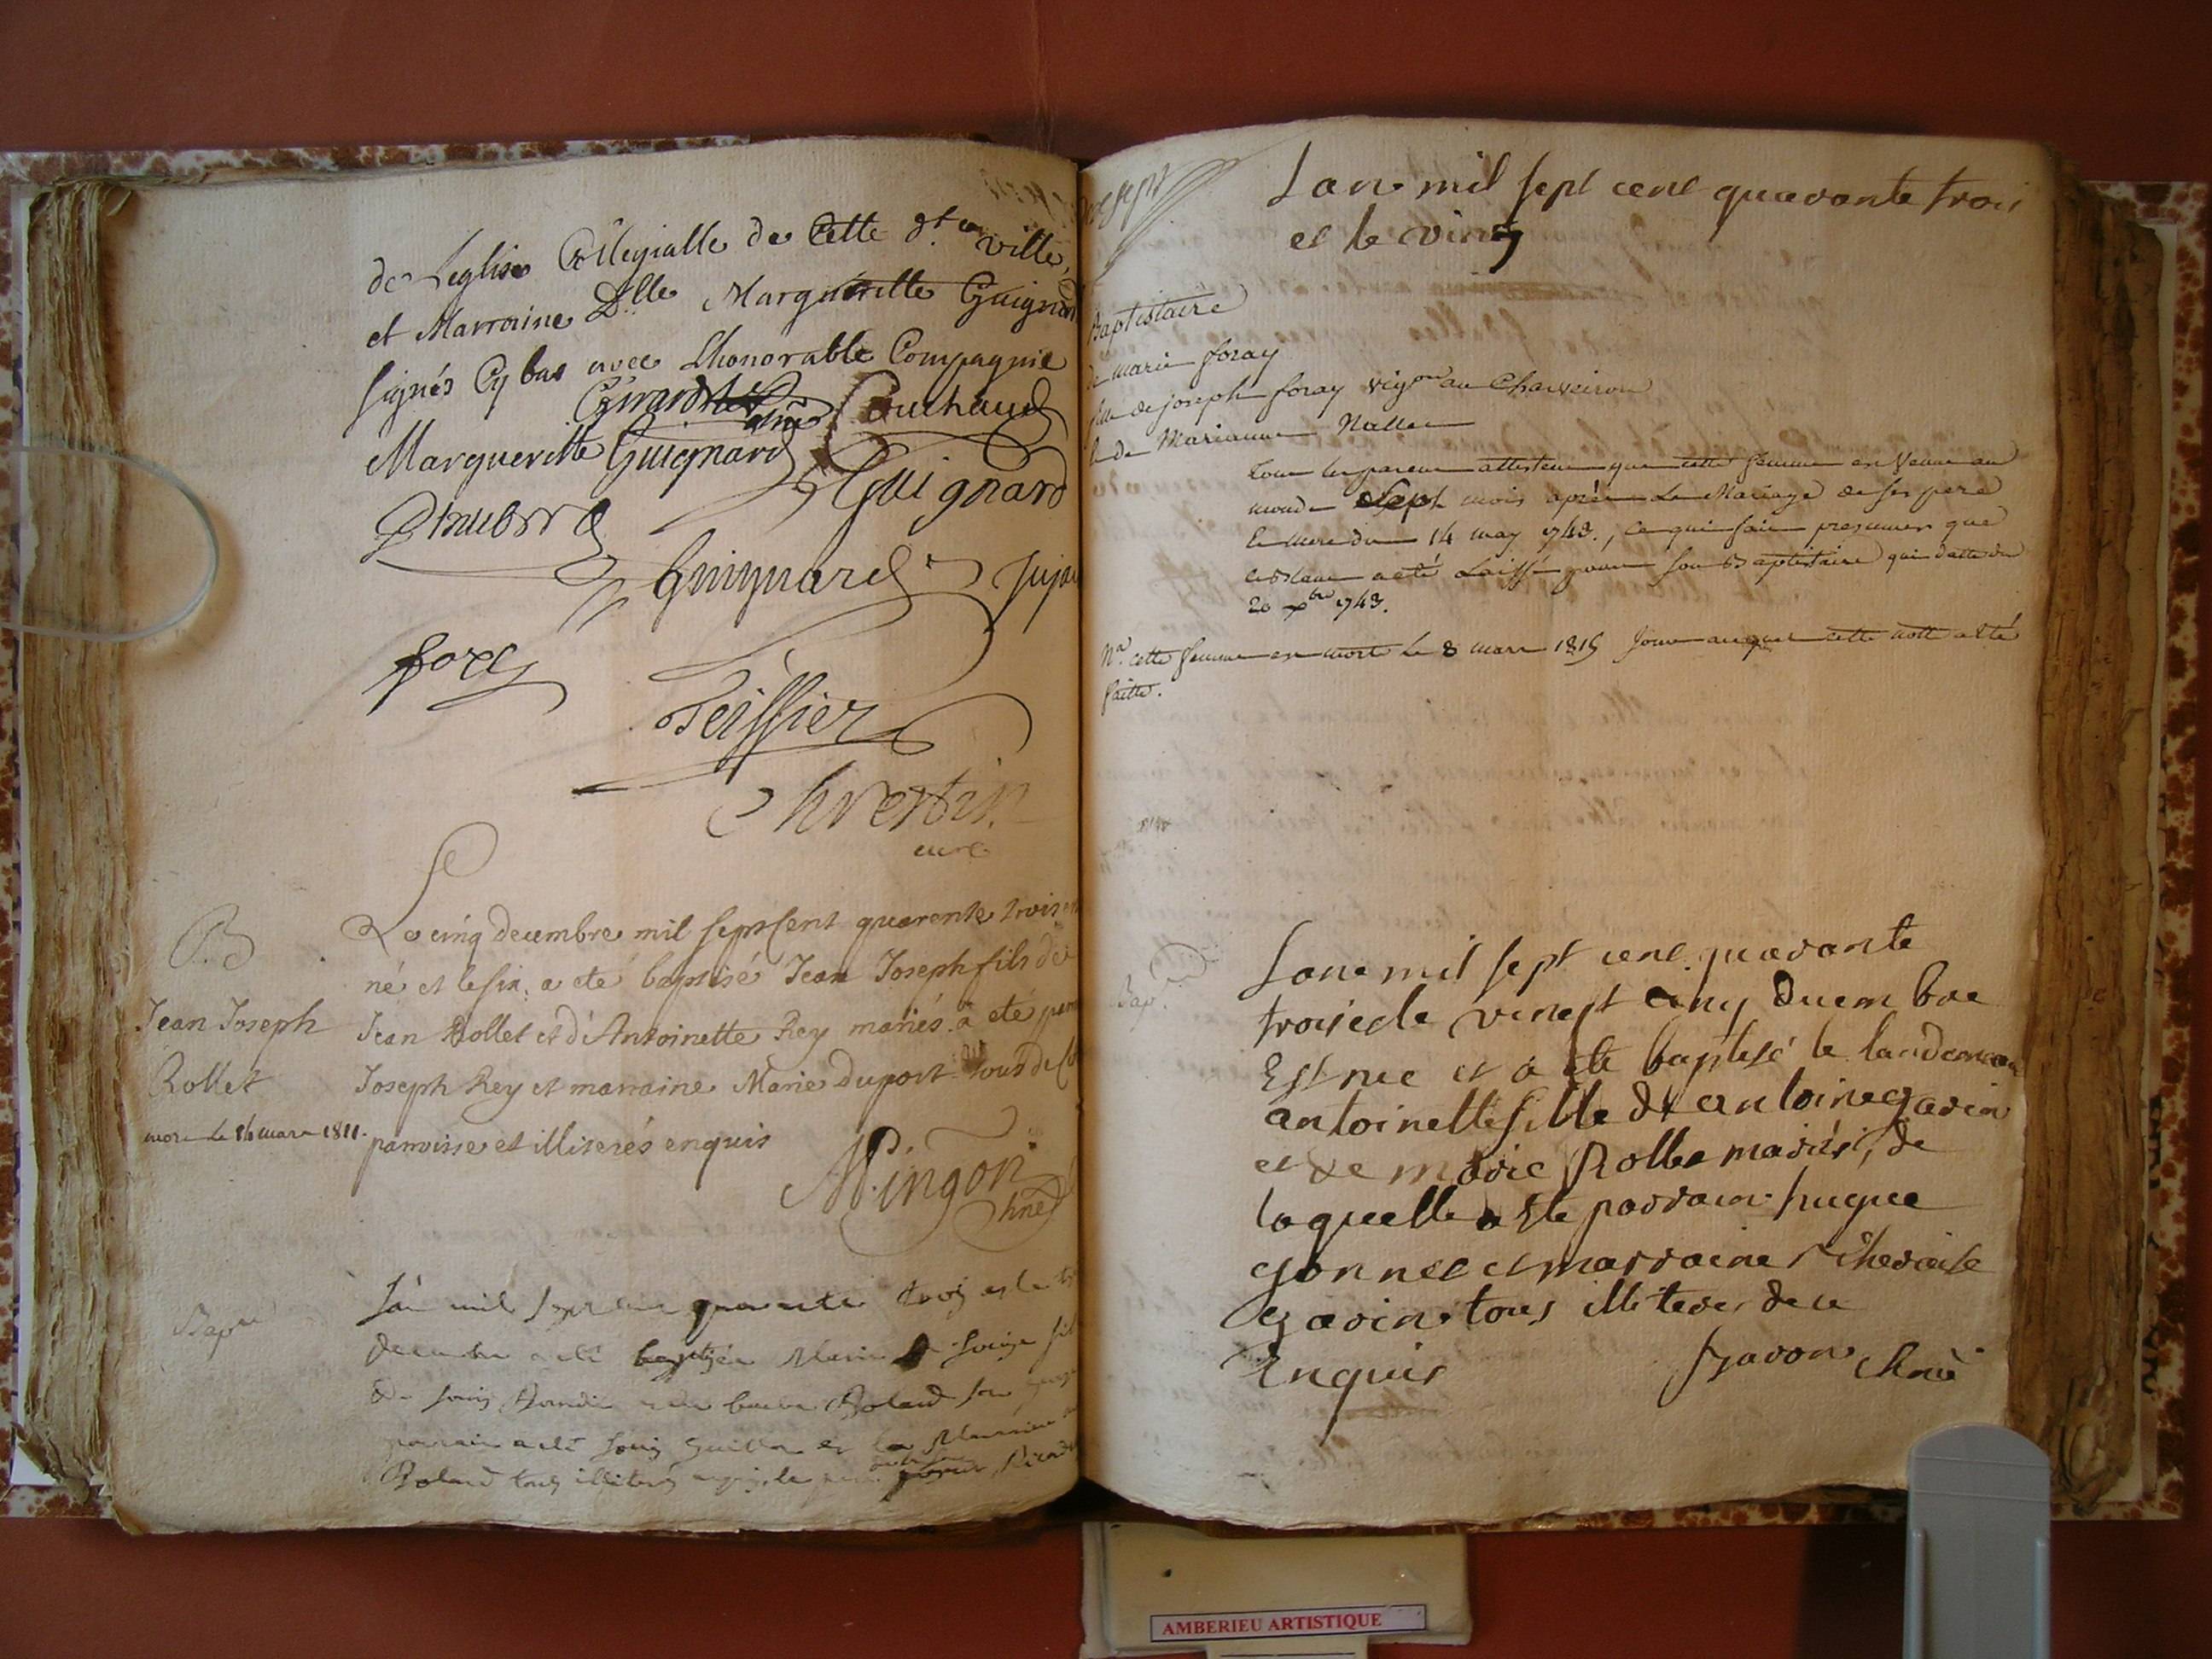 de Leglise Collegialle de Cette d.te ville,
et Marraine D.lle Marguéritte Guignard
signés Cy bas avec Lhonorable Compagnie
Couchaud
Margueritte Guignard
Guignard
Guignard
forey
Teissier
curé
B
Jean Joseph
Rollet
mort le 14 mars 1811.
Le cinq decembre mil sept Cent quarente trois est
né et le six a eté baptisé Jean Joseph fils de
Jean Rollet et d'Antoinette Rey mariés. a eté
Joseph Rey et marraine Marie Duport tous de
parroisse et illiterés enquis
Mingon
chne
Bap.
Lan mil sept cent quarente trois et le
decembre a eté baptisée Marie Louise
de Louis et de Roland son
parrain a eté Louis Guillon et la Marraine
Roland tous illiterés enquis
Lan mil sept cent quarante trois
et le ving
Baptistaire
de marie foray
fille de joseph foray vig.on au Charveiron
et de Marianne
Tous les parens attestent que cette femme est venue au
monde sept mois après Le Mariage de ses pere
et mere du 14 may 1743., ce qui fait presumer que
ce blanc a eté Laissé pour son Baptistaire qui datte du
20 xbre 1743.
N.a cette femme est morte le 8 mars 1815 jour auquel cette notte a eté
faitte.
Bap.
Lan mil sept cent quarante
trois et le vingt cinq decembre
Est nee et a ete baptisé le landemain
antoinette fille de antoine garin
et de marie Rollet mariés, de
laquelle a ete parrain hugue
et marraine
garin tous illiteres de ce
Enquis
chne
AMBERIEU ARTISTIQUE